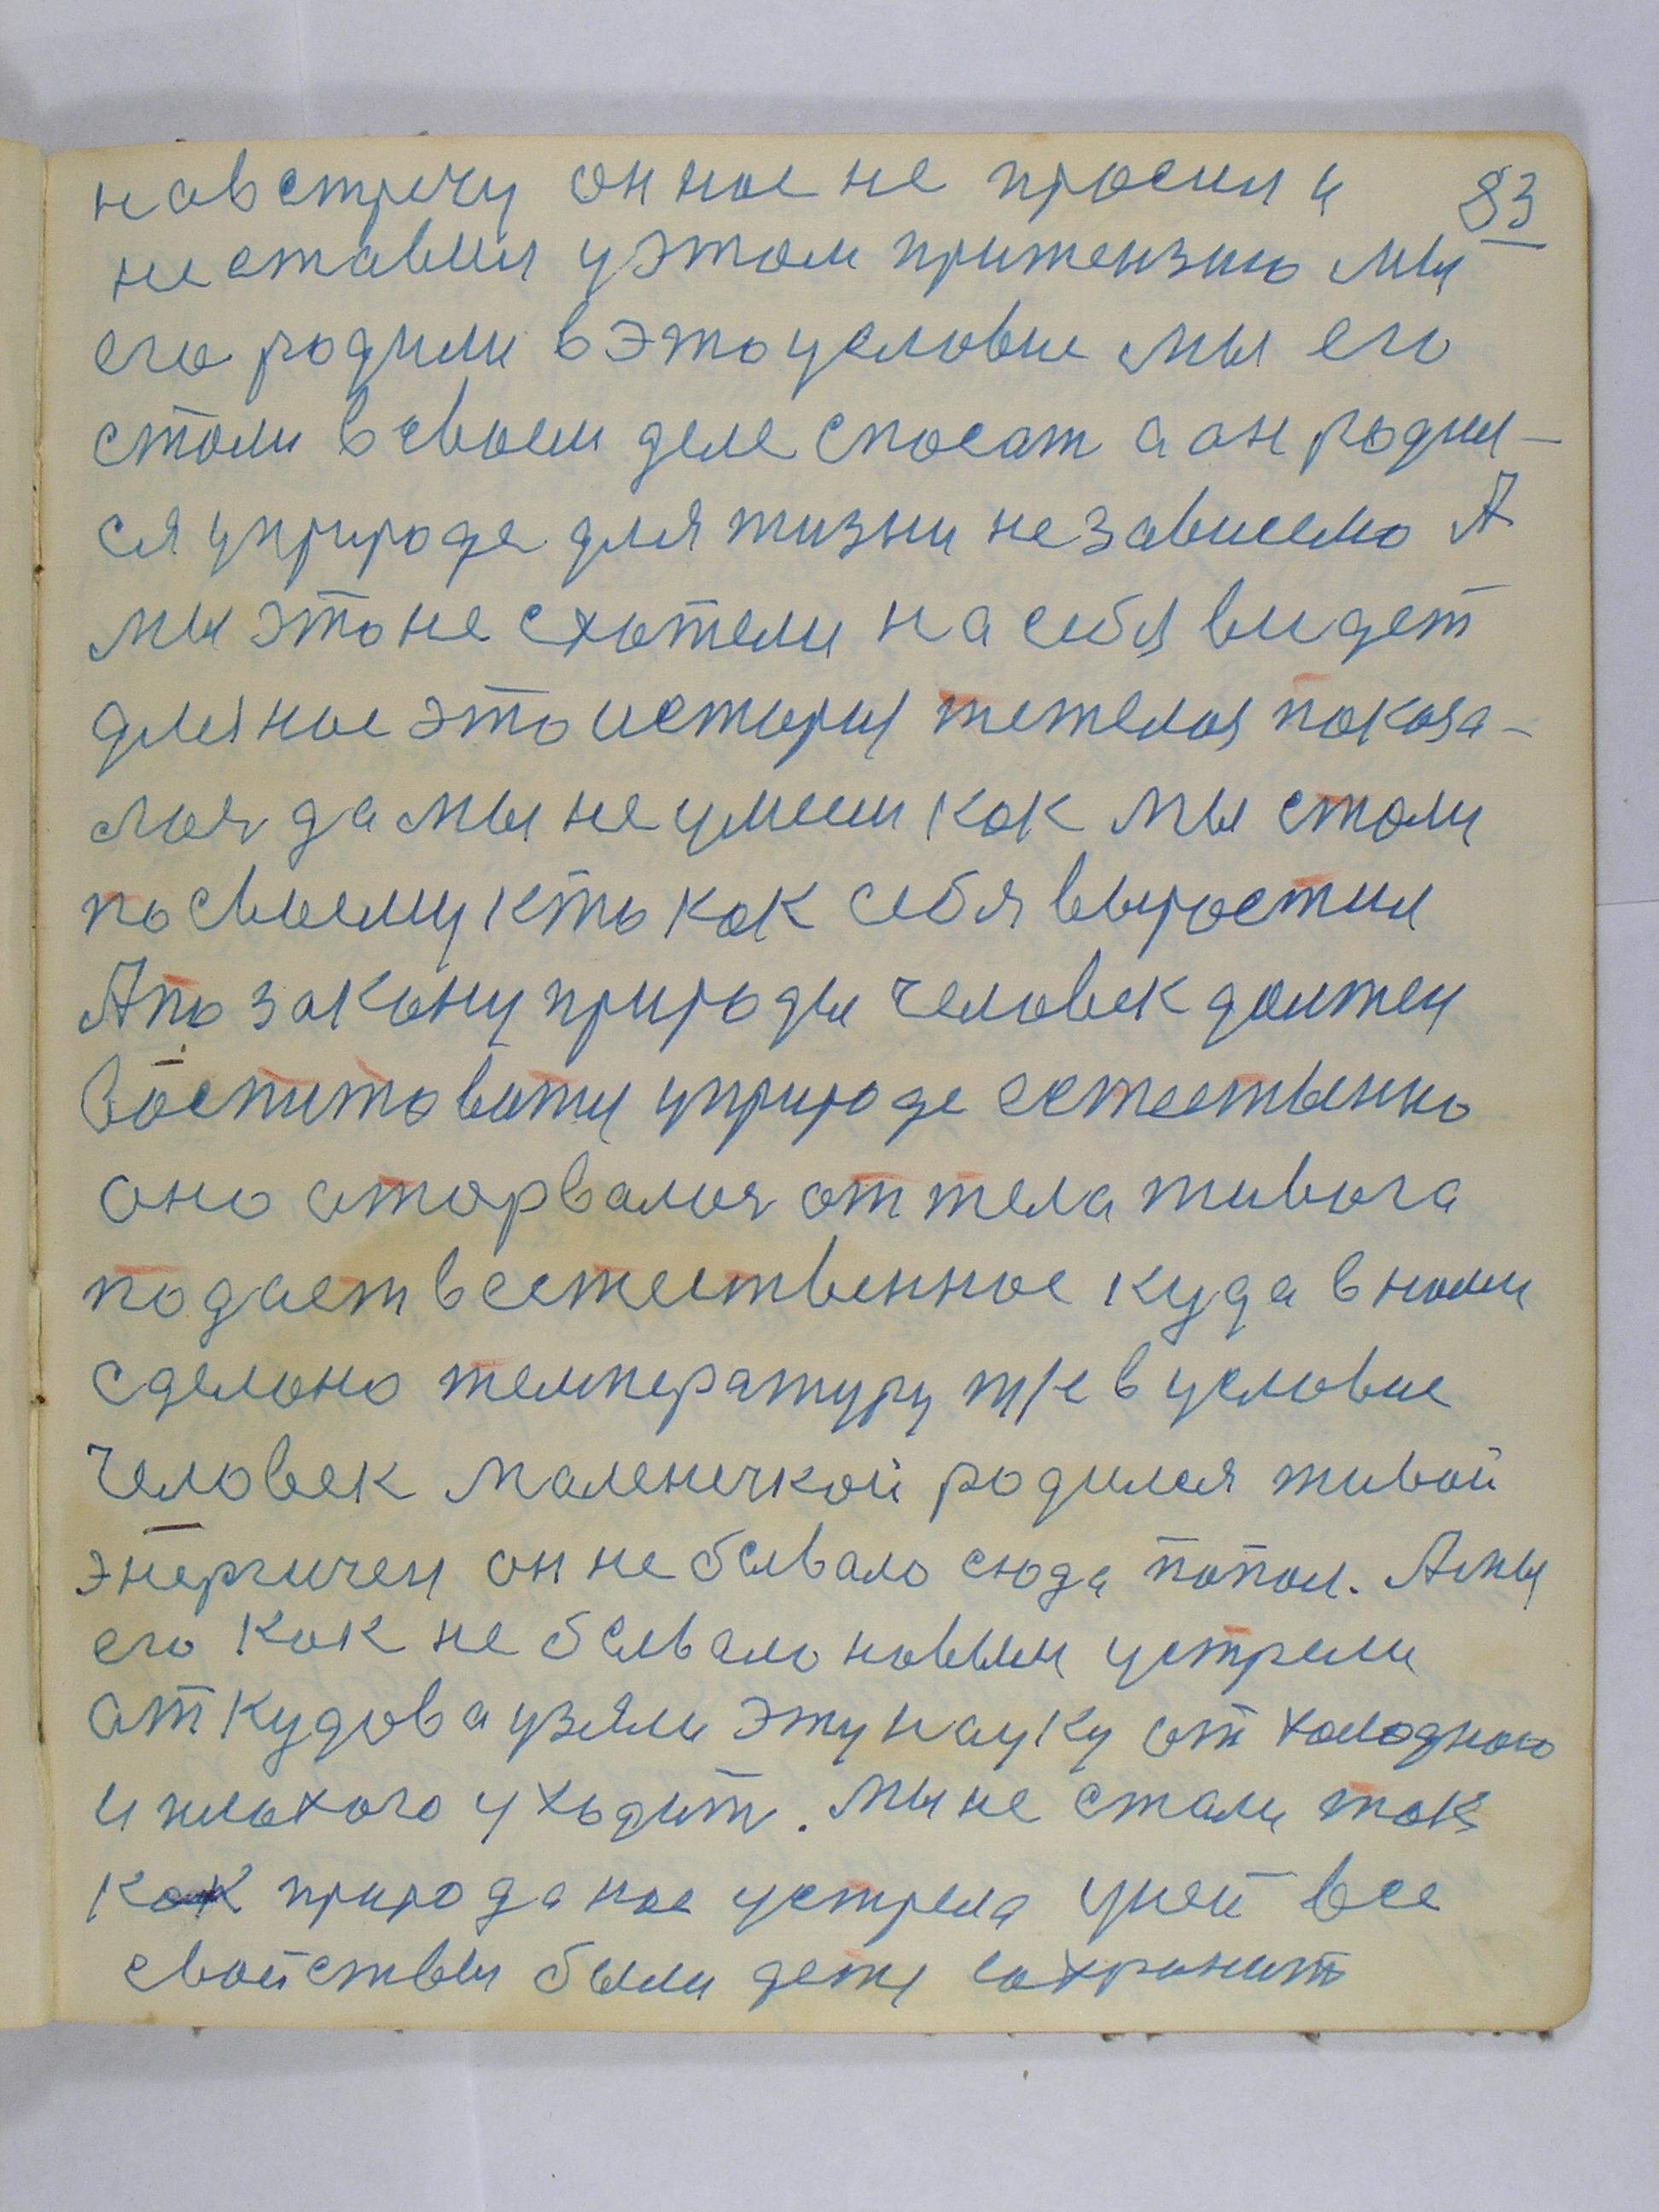 навстречу он нас не просил и 83
не ставил у этом притензию мы
его родили в это условие мы его
стали в своем деле спосат а он роди-
ся уприроде для жизни независемо А
мы это не схотели на себя видет
для нас это история тежелая показа-
лося да мы не умеем как мы стали
по своему кто как себя выростил
А по закону природы человек должен
воспитоватся уприроде естественно
оно оторвалося от тела живога
подает в естественное куда в ними
сделоно температуру т/е в условие
человек маленечкой родился живой
энергичен он не бывало сюда попал. А мы
его как не бывало новым устрели
откудова узяли эту науку от холодного
и плохого уходит. Мы не стали так
как природа нас устрела уней все
свойствы были дети сохранит